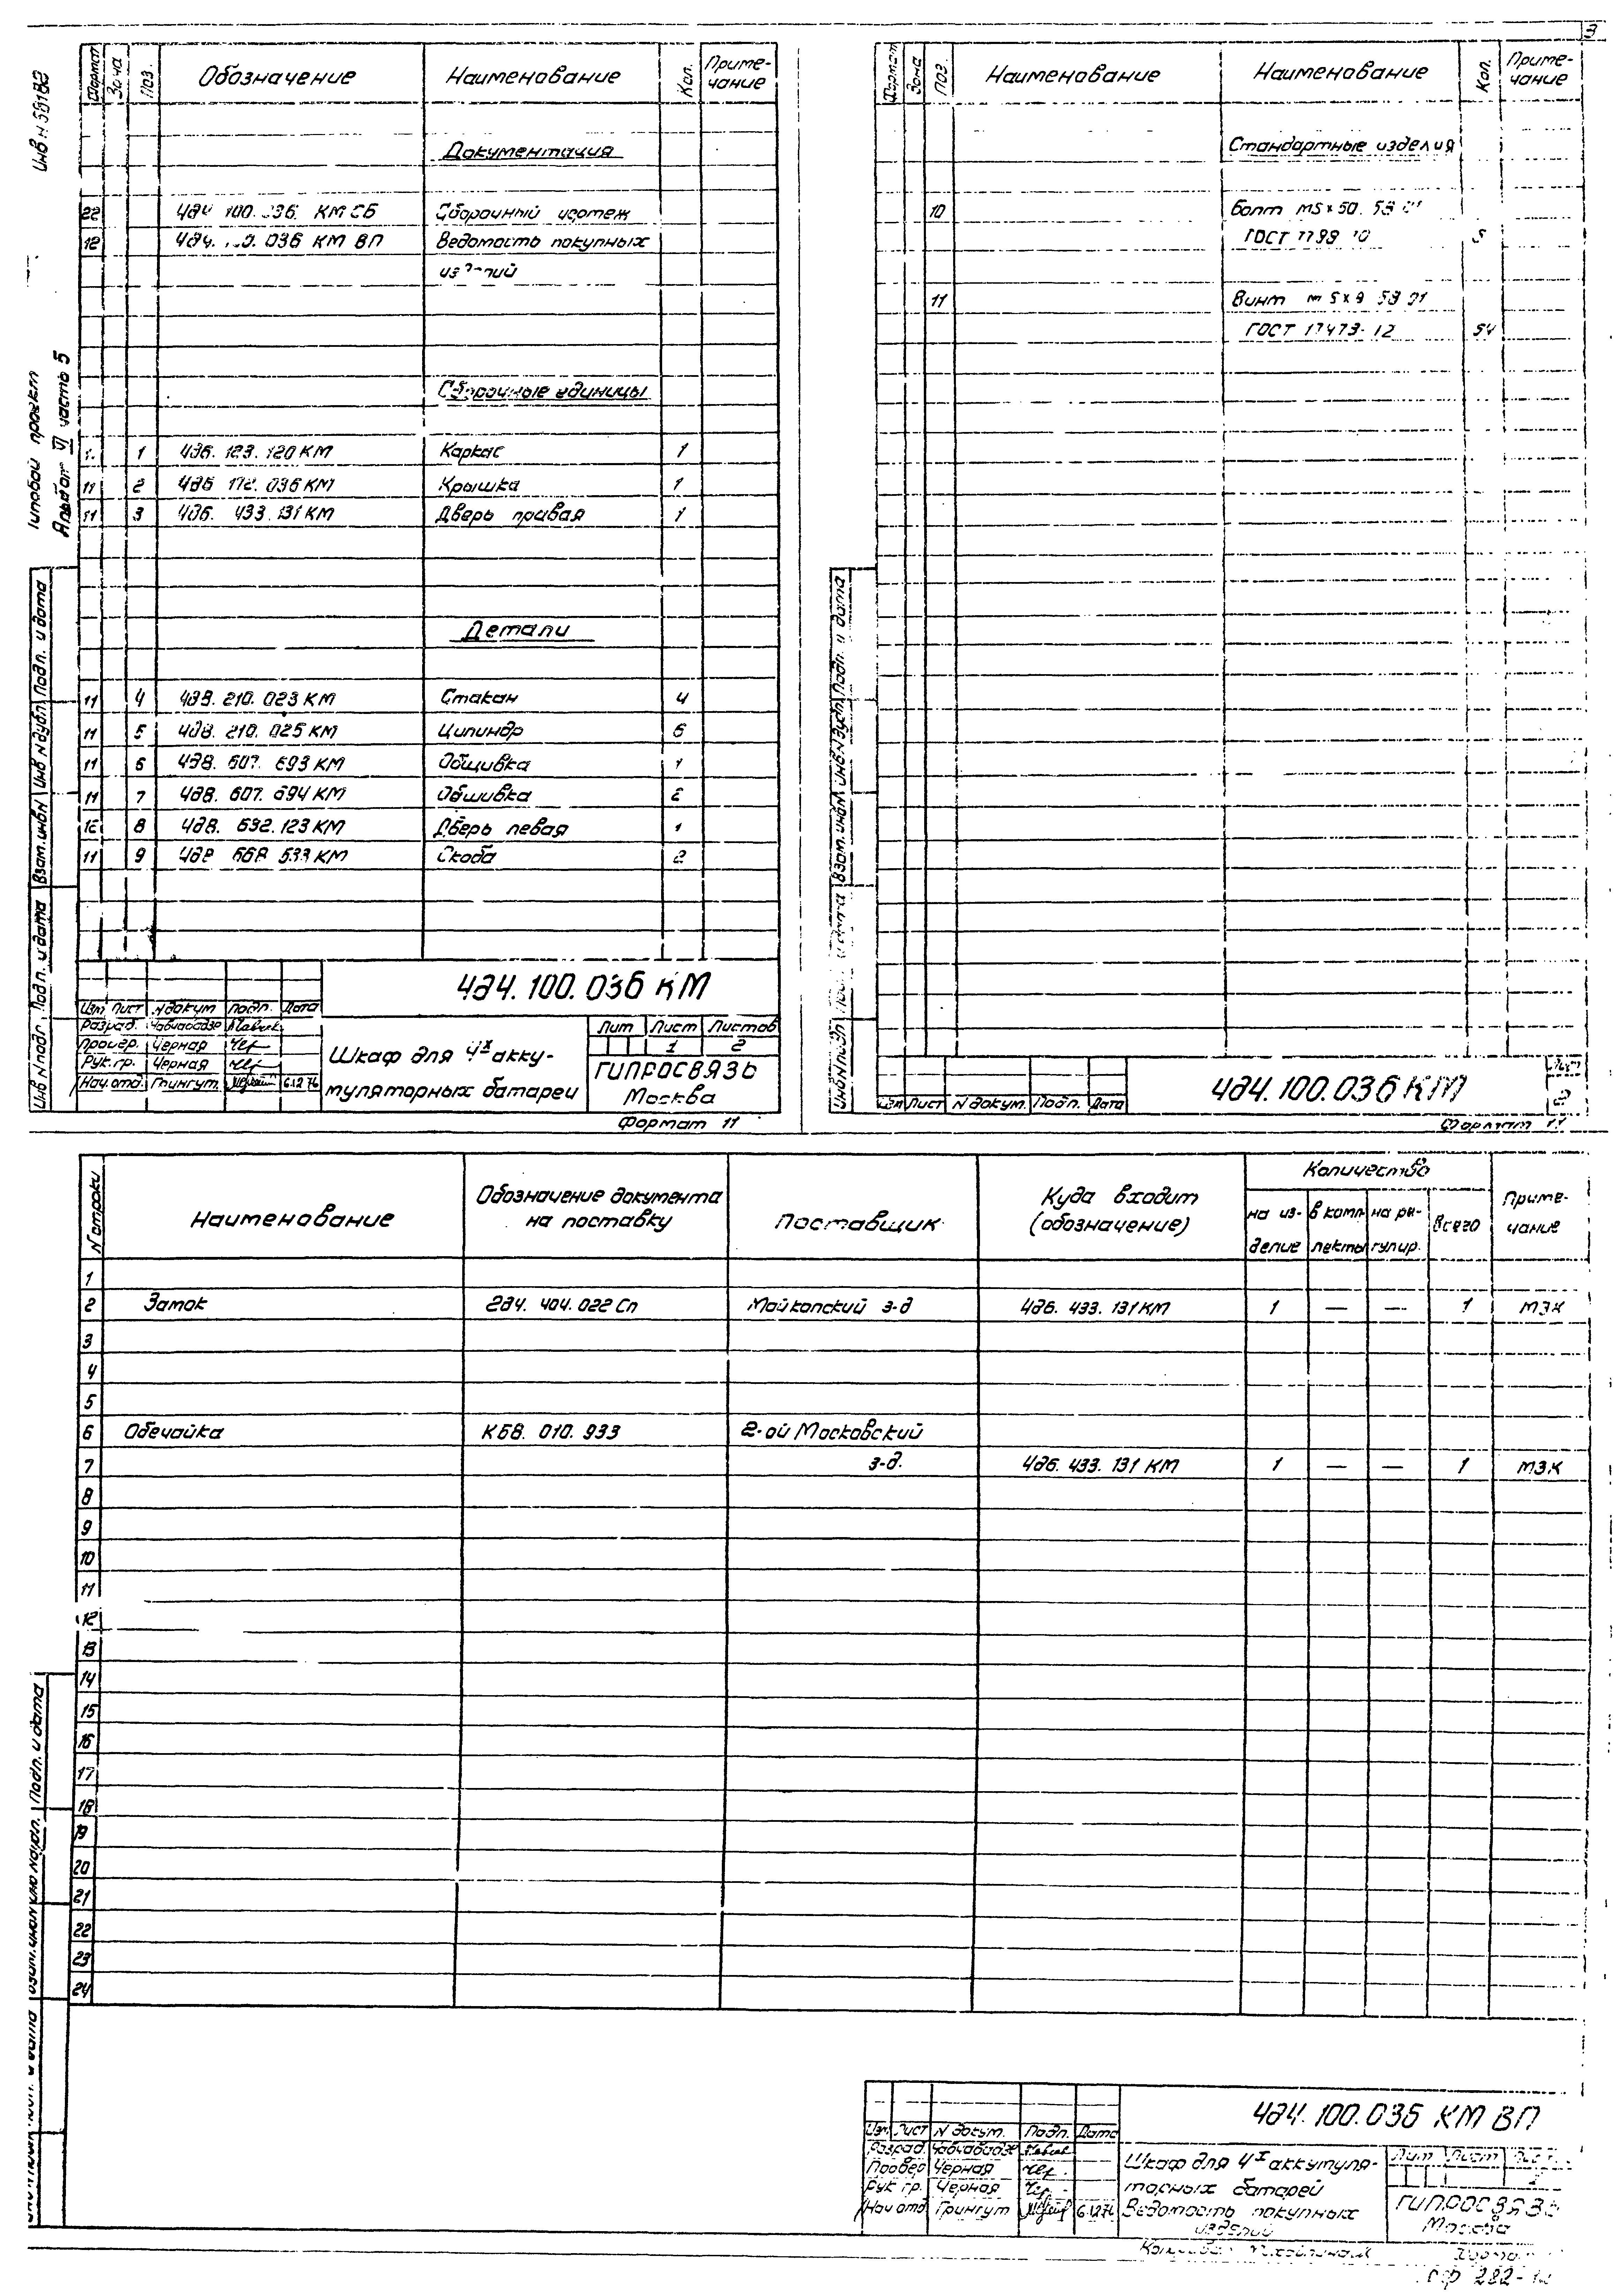 3
Формат Зона Поз. Обозначение Наименование Кол. Приме-чание
Документация
22 4д4 100.036. КМ СБ Сборочный чертеж
12 036 КМ ВП Ведомость покупных
Сборочные единицы
1 4д6. 123. 120 КМ Каркас 1
11 2 4д6 172. 036 КМ Крышка 1
11 3 4д6. 433. 131 КМ Дверь правая 1
Детали
11 4 4д8. 210. 023 КМ Стакан 4
11 5 4д8. 210. 025 КМ Цилиндр 6
11 6 4д8. 607. 693 КМ Обшивка 1
11 7 4д8. 607. 694 КМ Обшивка 2
12 8 4д8. 632. 123 КМ Дверь левая 1
11 9 668 Скоба 2
4д4. 100. 036 КМ
Изм Лист N докум Подп. Дата
Разраб.
Провер. Черная
Рук. гр. Черная
Нач. отд. Грингут. 6.12.76
Шкаф для 4х акку-
муляторных батареи
Лит Лист Листов
1 2
ГИПРОСВЯЗЬ
Москва
Формат 11
Типовой проект
Альбом VI часть 5
Инв N подл Подп. и дата Взам. инв N Инв N дубл Подп. и дата
Формат Зона Поз. Наименование Наименование Кол. Приме-чание
Стандартные изделия
10 Болт М5 х 50.
ГОСТ
11 Винт
ГОСТ 17473- 54
4д4. 100. 036 КМ
Изм Лист N докум. Подп. Дата
Лист
2
Формат 11
N строки Наименование Обозначение документа на поставку Поставщик Куда входит (обозначение) Количество Приме-чание
на из-делие в комп-лекты на ре-гулир. Всего
1
2 Замок 2д4. 404. 022 Сп Майкопский з-д 4д6. 433. 131 КМ 1 — — 1 МЗК
3
4
5
6 Обечайка КБ8. 010. 933 2-ой Московский
7 з-д. 4д6. 433. 131 КМ 1 — — 1 МЗК
8
9
10
11
12
13
14
15
16
17
18
19
20
21
22
23
24
4д4. 100. 036 КМ ВП
Изм. Лист N докум. Подп. Дата
Разраб
Провер Черная
Рук гр. Черная
Нач отд Грингут 6.12.76
Шкаф для 4х аккумуля-
торных батарей
Ведомость покупных
изделий
Лит Лист
ГИПРОСВЯЗЬ
Москва